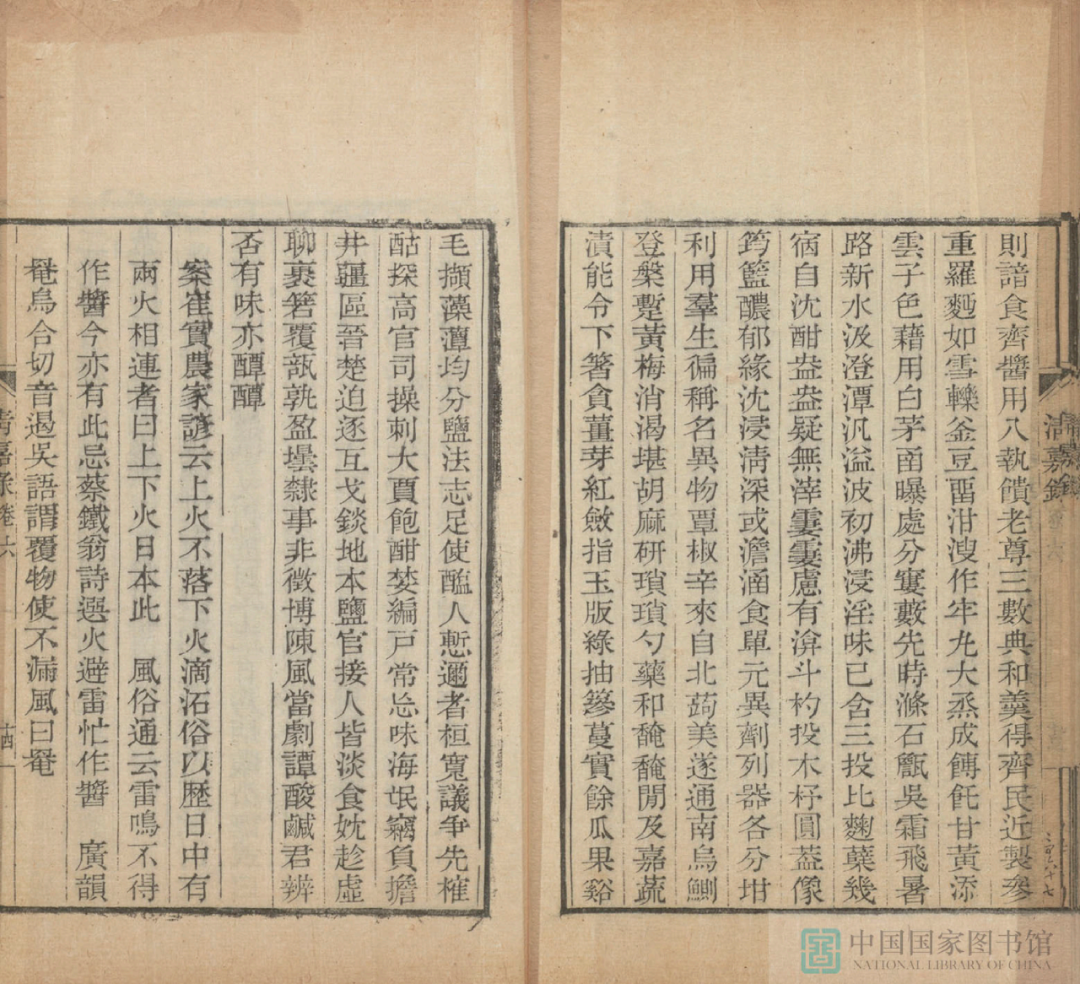 則諳食齊醬用八執饋老尊三數典和羹得齊民近製參
重羅麪如雪轢釜豆畱泔溲作牢丸大烝成餺飥甘黃添
雲子色藉用白茅㐭曝處分寠藪先時滌石甎吳霜飛暑
路新水汲澄潭汎溢波初沸浸淫味已含三投比麴糵幾
宿自沈酣盎盎疑無滓䨥䨥慮有渰斗杓投木杍圓葢像
筠籃醲郁緣沈浸淸深或澹涵食單元異劑列器各分坩
利用羣生徧稱名異物覃椒辛來自北蒟美遂通南烏鰂
登槃蹔黃梅消渴堪胡麻研瑣瑣勺藥和醃醃閒及嘉蔬
漬能令下箸貪薑芽紅斂指玉版綠抽篸蔓實餘瓜果谿
毛擷藻薄均分鹽法志足使醢人慙邇者桓寬議争先榷
酤探高官司操刺大賈飽酣婪編戸常㤀味海氓竊負擔
井疆區晉楚迫逐互戈錟地本鹽官接人皆淡食妉趁虛
聊裹箬覆瓿孰盈壜隸事非徵博陳風當劇譚酸鹹君辨
否有味亦醰醰
案崔實農家諺云上火不落下火滴沰俗以歴日中有
兩火相連者曰上下火日本此 風俗通云雷鳴不得
作醬今亦有此忌蔡鐵翁詩選火避雷忙作醬 廣韻
罨烏合切音遏吳語謂覆物使不漏風曰罨
清嘉錄
清嘉录卷六
十四
中国国家图书馆
NATIONAL LIBRARY OF CHINA